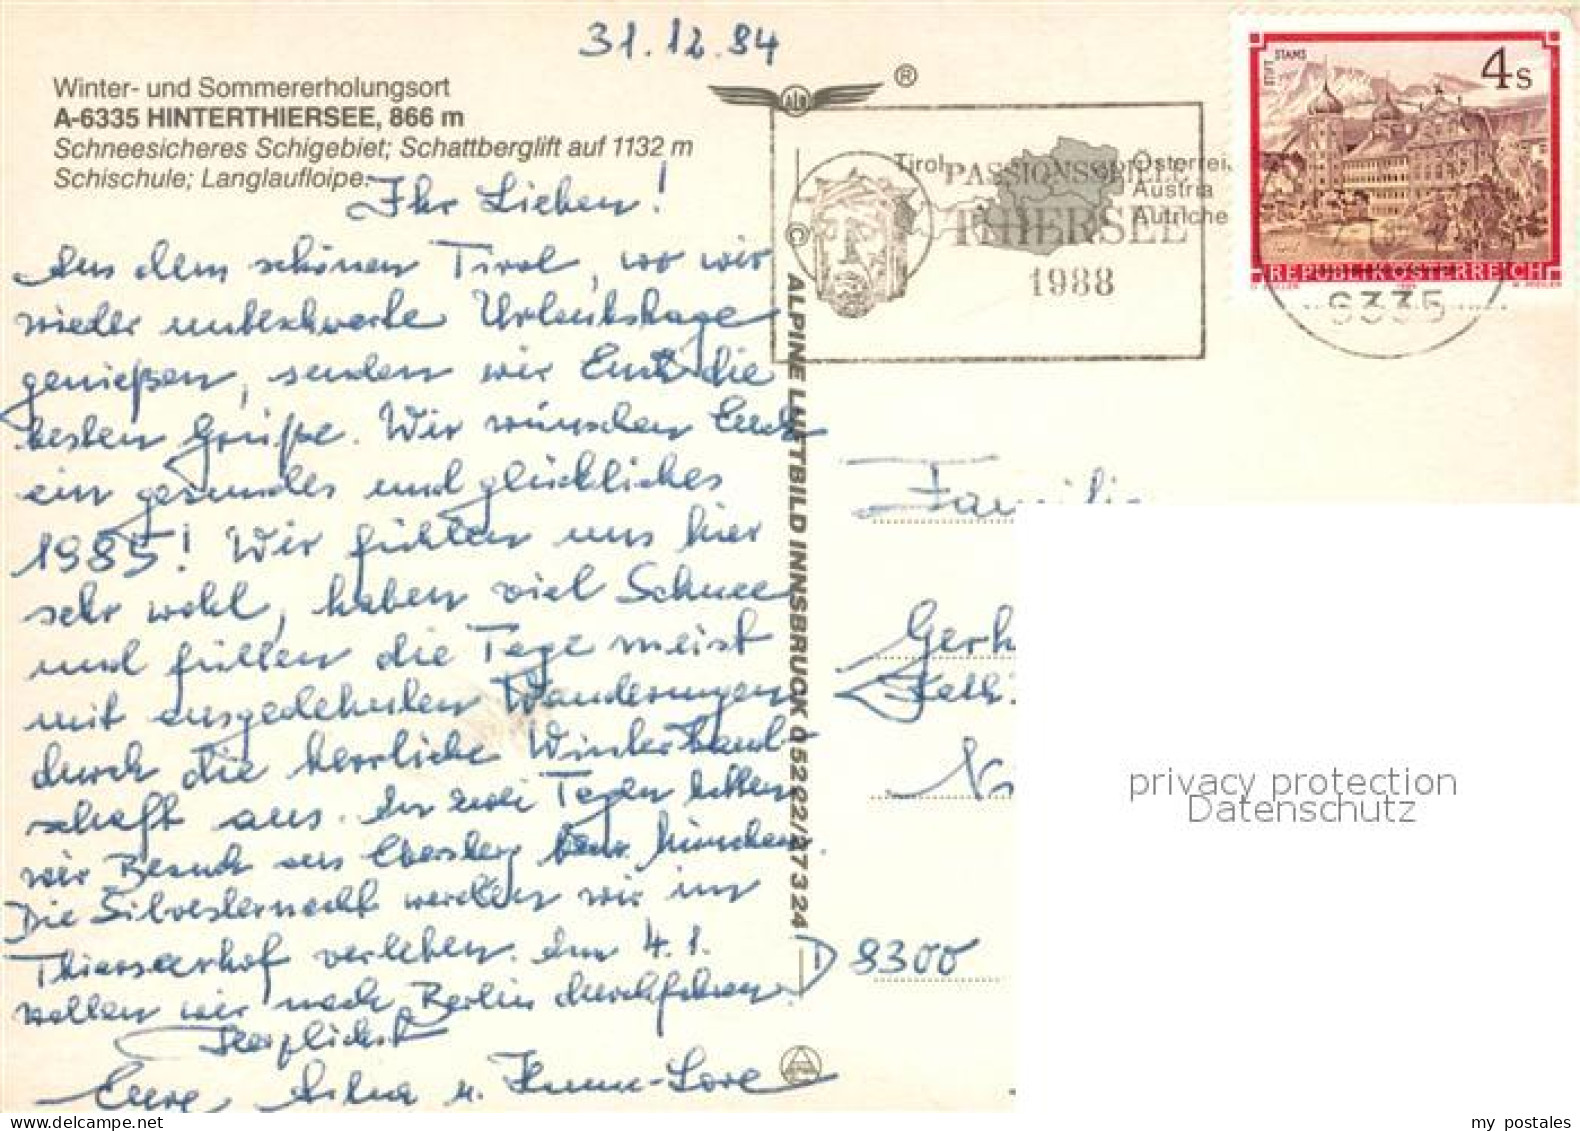 31.12.84
Winter- und Sommererholungsort
A-6335 HINTERTHIERSEE, 866 m
Schneesicheres Schigebiet; Schattberglift auf 1132 m
Schischule; Langlaufloipe.
Ihr Lieben!
Aus dem schönen Tirol, wo wir
wieder unbeschwerte Urlaubstage
genießen, senden wir Euch die
besten Grüße. Wir wünschen Euch
ein gesundes und glückliches
1985! Wir fühlen uns hier
sehr wohl, haben viel Schnee
und füllen die Tage meist
mit ausgedehnten Wanderungen
durch die herrliche Winterland-
schaft aus. An zwei Tagen hatten
wir Besuch aus Ebersberg bzw. München.
Die Silvesternacht werden wir im
Thierseerhof verleben. Am 4.1.
wollen wir nach Berlin durchfahren.
Herzlichst
Eure u. Hanne-Lore
ALPINE LUFTBILD INNSBRUCK 05222/27324
®
©
Tirol
Österrei
Austria
Autriche
PASSIONSSPIELE
THIERSEE
1988
STIFT STAMS
4 S
REPUBLIK ÖSTERREICH
6335
Familie
Gerh
D 8300
privacy protection
Datenschutz
my postales